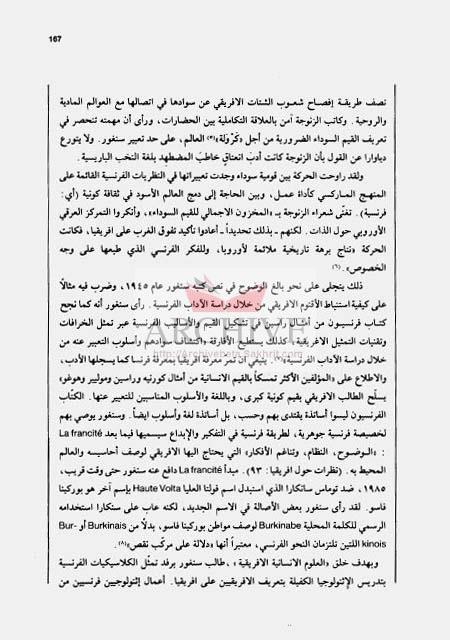 167
نصف طريقة إفصاح شعوب الشتات الافريقي عن سوادها في اتصالها مع العوالم المادية
والروحية . وكاتب الزنوجة آمن بالعلاقة التكاملية بين الحضارات، ورأى أن مهمته تنحصر في
تعريف القيم السوداء الضرورية من أجل «كَرْوَلة»(٥) العالم، على حد تعبير سنغور. ولا يتورع
دياوارا عن القول بأن الزنوجة كانت أدبَ انعتاقٍ خاطبَ المضطهد بلغة النخب الباريسية .
ولقد راوحت الحركة بين قومية سوداء وجدت تعبيراتها في النظريات الفرنسية القائمة على
المنهج الماركسي كأداة عمل، وبين الحاجة إلى دمج العالم الأسود في ثقافة كونية (أي:
فرنسية). تغنّى شعراء الزنوجة بـ «المخزون الاجمالي للقيم السوداء»، وأنكروا التمركز العرقي
الأوروبي حول الذات . لكنهم ـ بذلك تحديداً ـ أعادوا تأكيد تفوق الغرب على افريقيا، فكانت
الحركة «نتاج برهة تاريخية ملائمة لأوروبا، وللفكر الفرنسي الذي طبعها على وجه
الخصوص».(٦)
ذلك يتجلى على نحو بالغ الوضوح في نص كتبه سنغور عام ١٩٤٥، وضرب فيه مثالاً
على كيفية استنباط الأقنوم الافريقي من خلال دراسة الآداب الفرنسية . رأى سنغور أنه كما نجح
كتاب فرنسيون من أمثال راسين في تشكيل القيم والأساليب الفرنسية عبر تمثل الخرافات
وتقنيات التمثيل الاغريقية، كذلك يستطيع الأفارقة «اكتشاف سوادهم وأسلوب التعبير عنه من
خلال دراسة الآداب الفرنسية»(٧). ينبغي أن تمر معرفة افريقيا بمعرفة فرنسا كما يسجلها الأدب،
والاطلاع على «المؤلفين الأكثر تمسكاً بالقيم الانسانية من أمثال كورنيه وراسين وموليير وهوغو»
يسلّح الطالب الافريقي بقيم كونية كبرى، وباللغة والأسلوب المناسبين للتعبير عنها. الكتّاب
الفرنسيون ليسوا أساتذة يقتدى بهم وحسب، بل أساتذة لغة وأسلوب ايضاً. وسنغور يوصي بهم
لخصيصة فرنسية جوهرية، لطريقة فرنسية في التفكير والإبداع سيسميها فيما بعد La francité
: «الوضوح، النظام، وتناغم الأفكار» التي يحتاج اليها الافريقي لوصف أحاسيسه والعالم
المحيط به . (نظرات حول افريقيا : ٩٣). مبدأ La francité دافع عنه سنغور حتى وقت قريب،
١٩٨٥، ضد توماس سانكارا الذي استبدل اسم فولتا العليا Haute Volta بإسم آخر هو بوركينا
فاسو. لقد رأى سنغور بعض الأصالة في الاسم الجديد، لكنه عاب على سنكارا استخدامه
الرسمي للكلمة المحلية Burkinabe لوصف مواطن بوركينا فاسو، بدلاً من Burkinais أو Bur-
kinois اللتين تلتزمان النحو الفرنسي، معتبراً أنها «دلالة على مركّب نقص»(٨).
وبهدف خلق «العلوم الانسانية الافريقية» ، طالب سنغور برفد تمثّل الكلاسيكيات الفرنسية
بتدريس الإثنولوجيا الكفيلة بتعريف الافريقيين على افريقيا. أعمال إثنولوجيين فرنسيين من
ARCHIVE
http://Archivebeta.Sakhrit.com